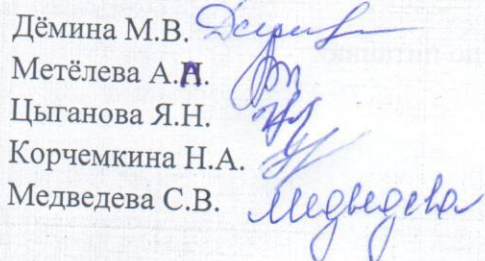 Дёмина М.В.
Метёлева А.А.
Цыганова Я.Н.
Корчемкина Н.А.
Медведева С.В. Медведева